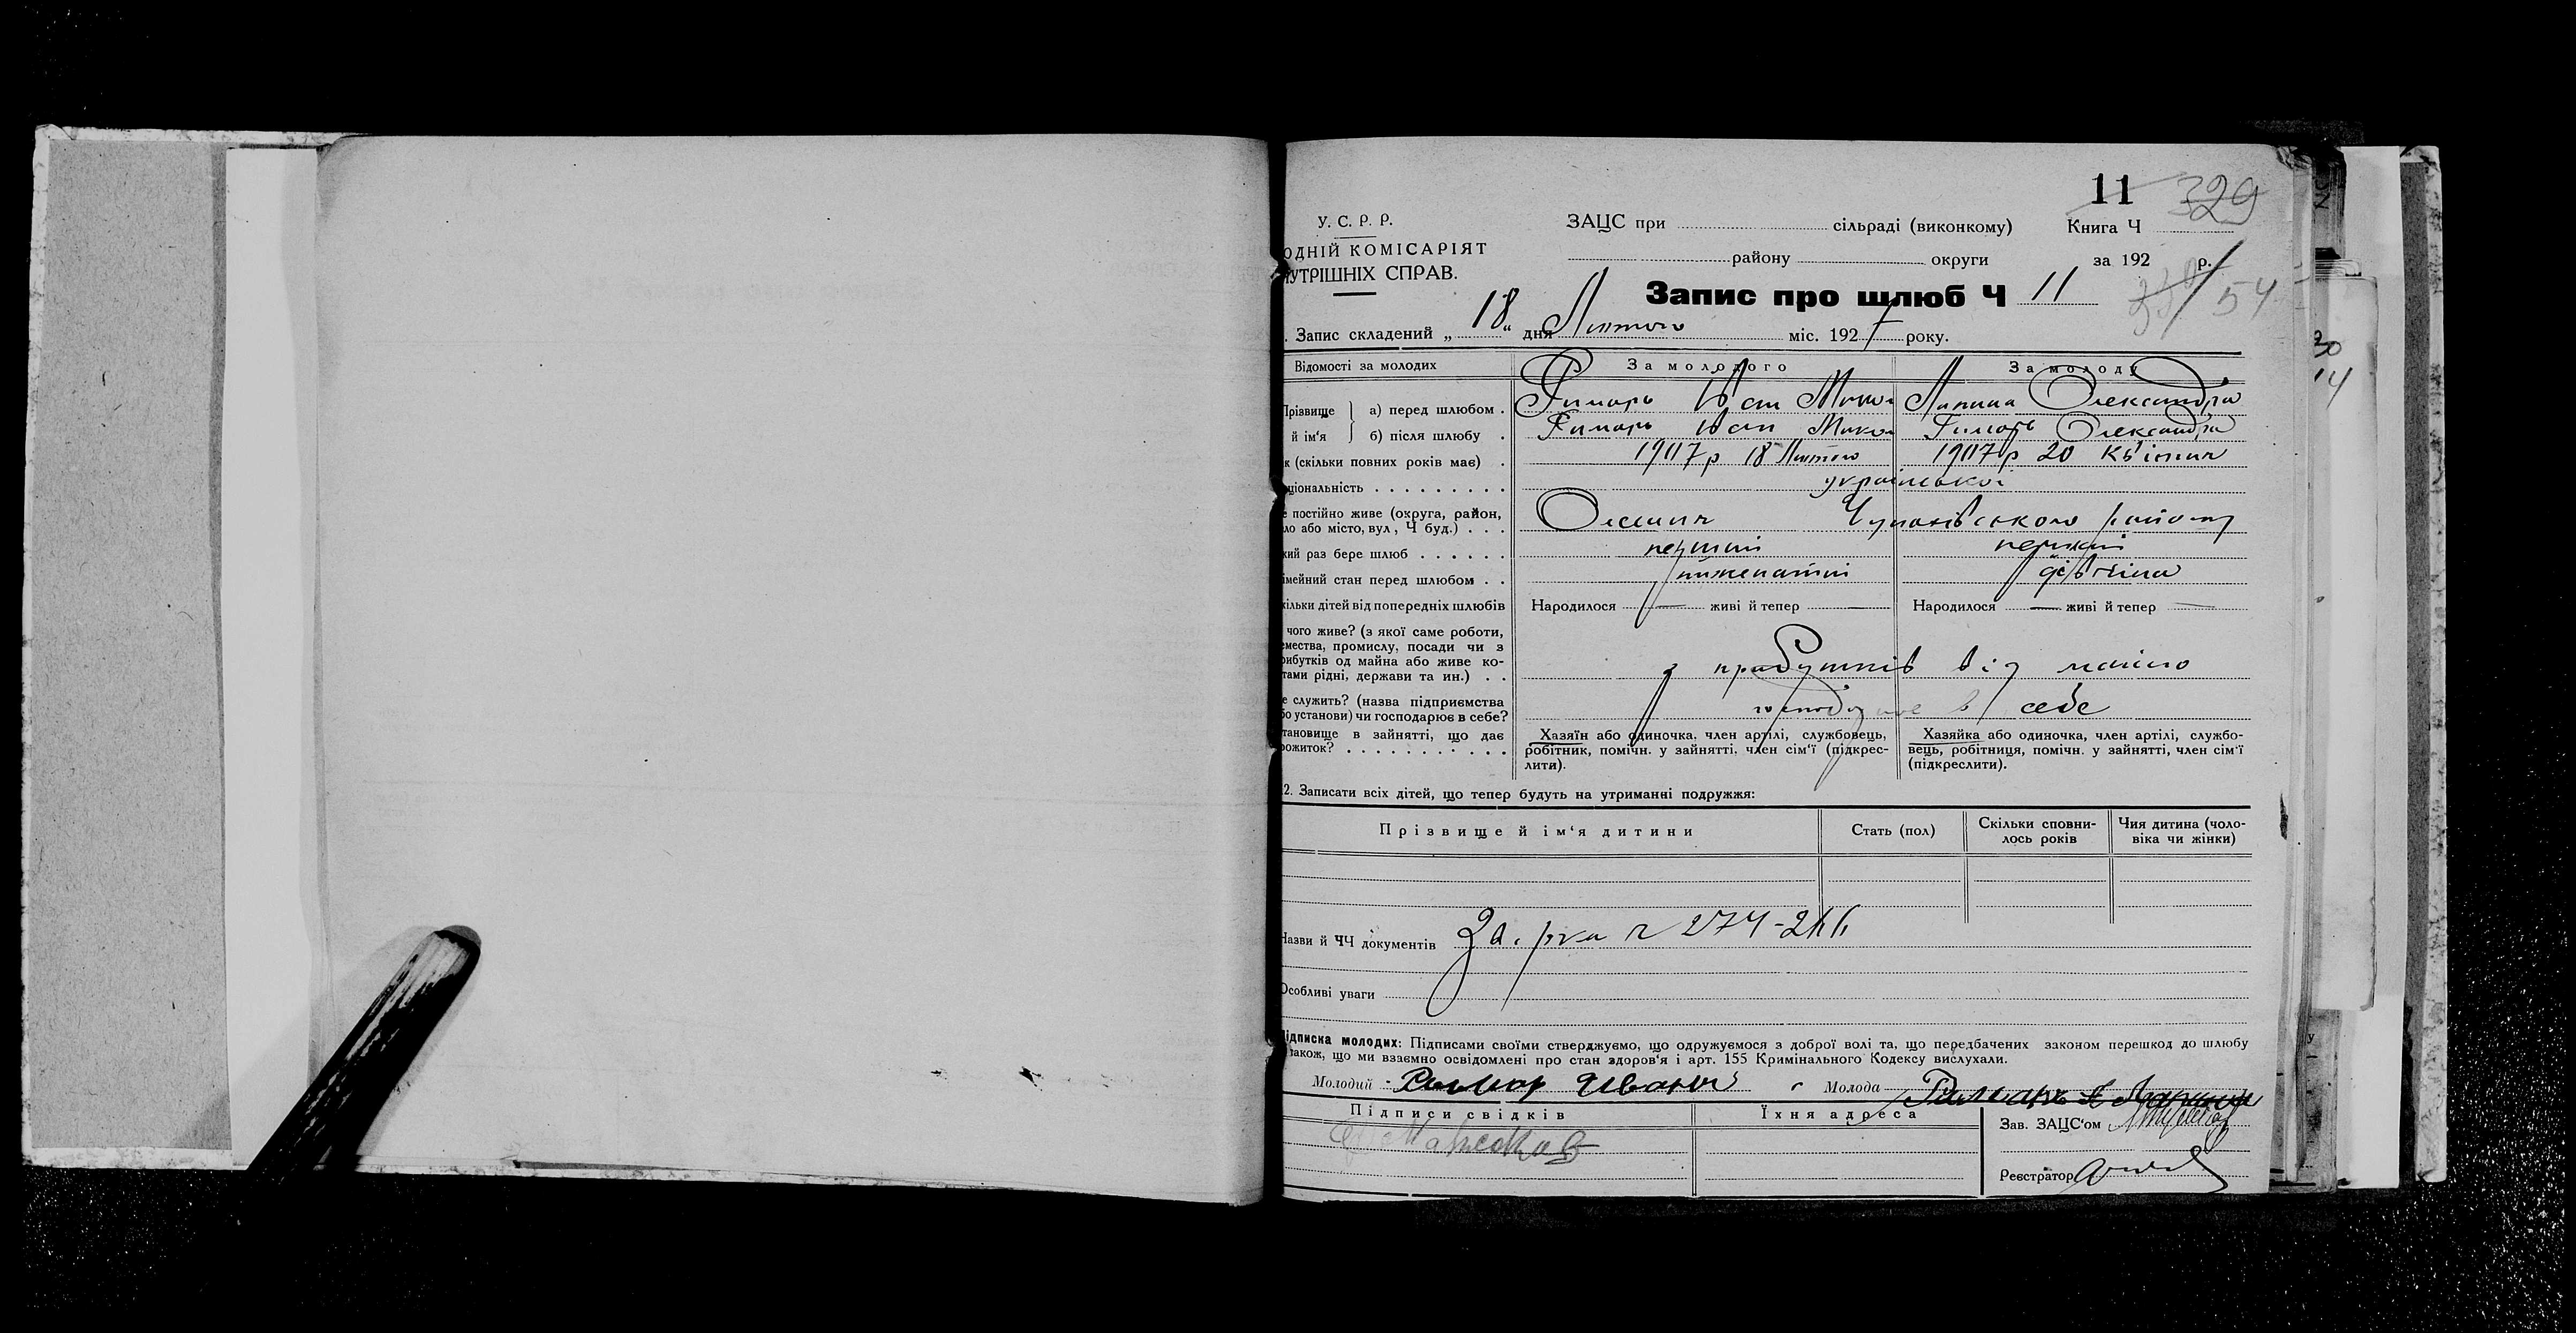 11 329
У. С. Р. Р.
ОДНІЙ КОМІСАРІЯТ
УТРІШНІХ СПРАВ.
ЗАЦС при сільраді (виконкому) Книга Ч
району округи за 192 р.
54
Запис про шлюб Ч 11
. Запис складений „ 18 “ дня Лютого міс. 1927 року.
30
14
Відомості за молодих За молодого За молоду
Прізвище й ім‘я а) перед шлюбом . Римарь Іван Мико Лапина Олександра
б) після шлюбу . Римарь Іван Мико Римарь Олександра
к (скільки повних років має) . 1907 р 18 Лютого 1907 р 20 квітня
ціональність . . . . . . . . . української
е постійно живе (округа, район,
ло або місто, вул, Ч буд.) . . . Чупахівського району
кий раз бере шлюб . . . . . . перший перший
імейний стан перед шлюбом . . ниженатий дівчина
кільки дітей від попередніх шлюбів Народилося — живі й тепер — Народилося — живі й тепер —
чого живе? (з якої саме роботи,
емества, промислу, посади чи з
рибутків од майна або живе ко-
тами рідні, держави та ин.) . . з прибутків від майна
е служить? (назва підприємства
бо установи) чи господарює в себе? господарює в себе
тановище в зайнятті, що дає
рожиток? . . . . . . . . . . .
Хазяїн або одиночка, член артілі, службовець,
робітник, помічн. у зайнятті, член сім‘ї (підкрес-
лити).
Хазяйка або одиночка, член артілі, службо-
вець, робітниця, помічн. у зайнятті, член сім‘ї
(підкреслити).
2. Записати всіх дітей, що тепер будуть на утриманні подружжя:
Прізвище й ім‘я дитини Стать (пол) Скільки сповни-
лось років Чия дитина (чоло-
віка чи жінки)
Назви й ЧЧ документів 274-266
Особливі уваги
ідписка молодих: Підписами своїми стверджуємо, що одружуємося з доброї волі та, що передбачених законом перешкод до шлюбу
також, що ми взаємно освідомлені про стан здоров‘я і арт. 155 Кримінального Кодексу вислухали.
Молодий Римар Иван Молода
Підписи свідків Їхня адреса
Зав. ЗАЦС‘ом
Реєстратор